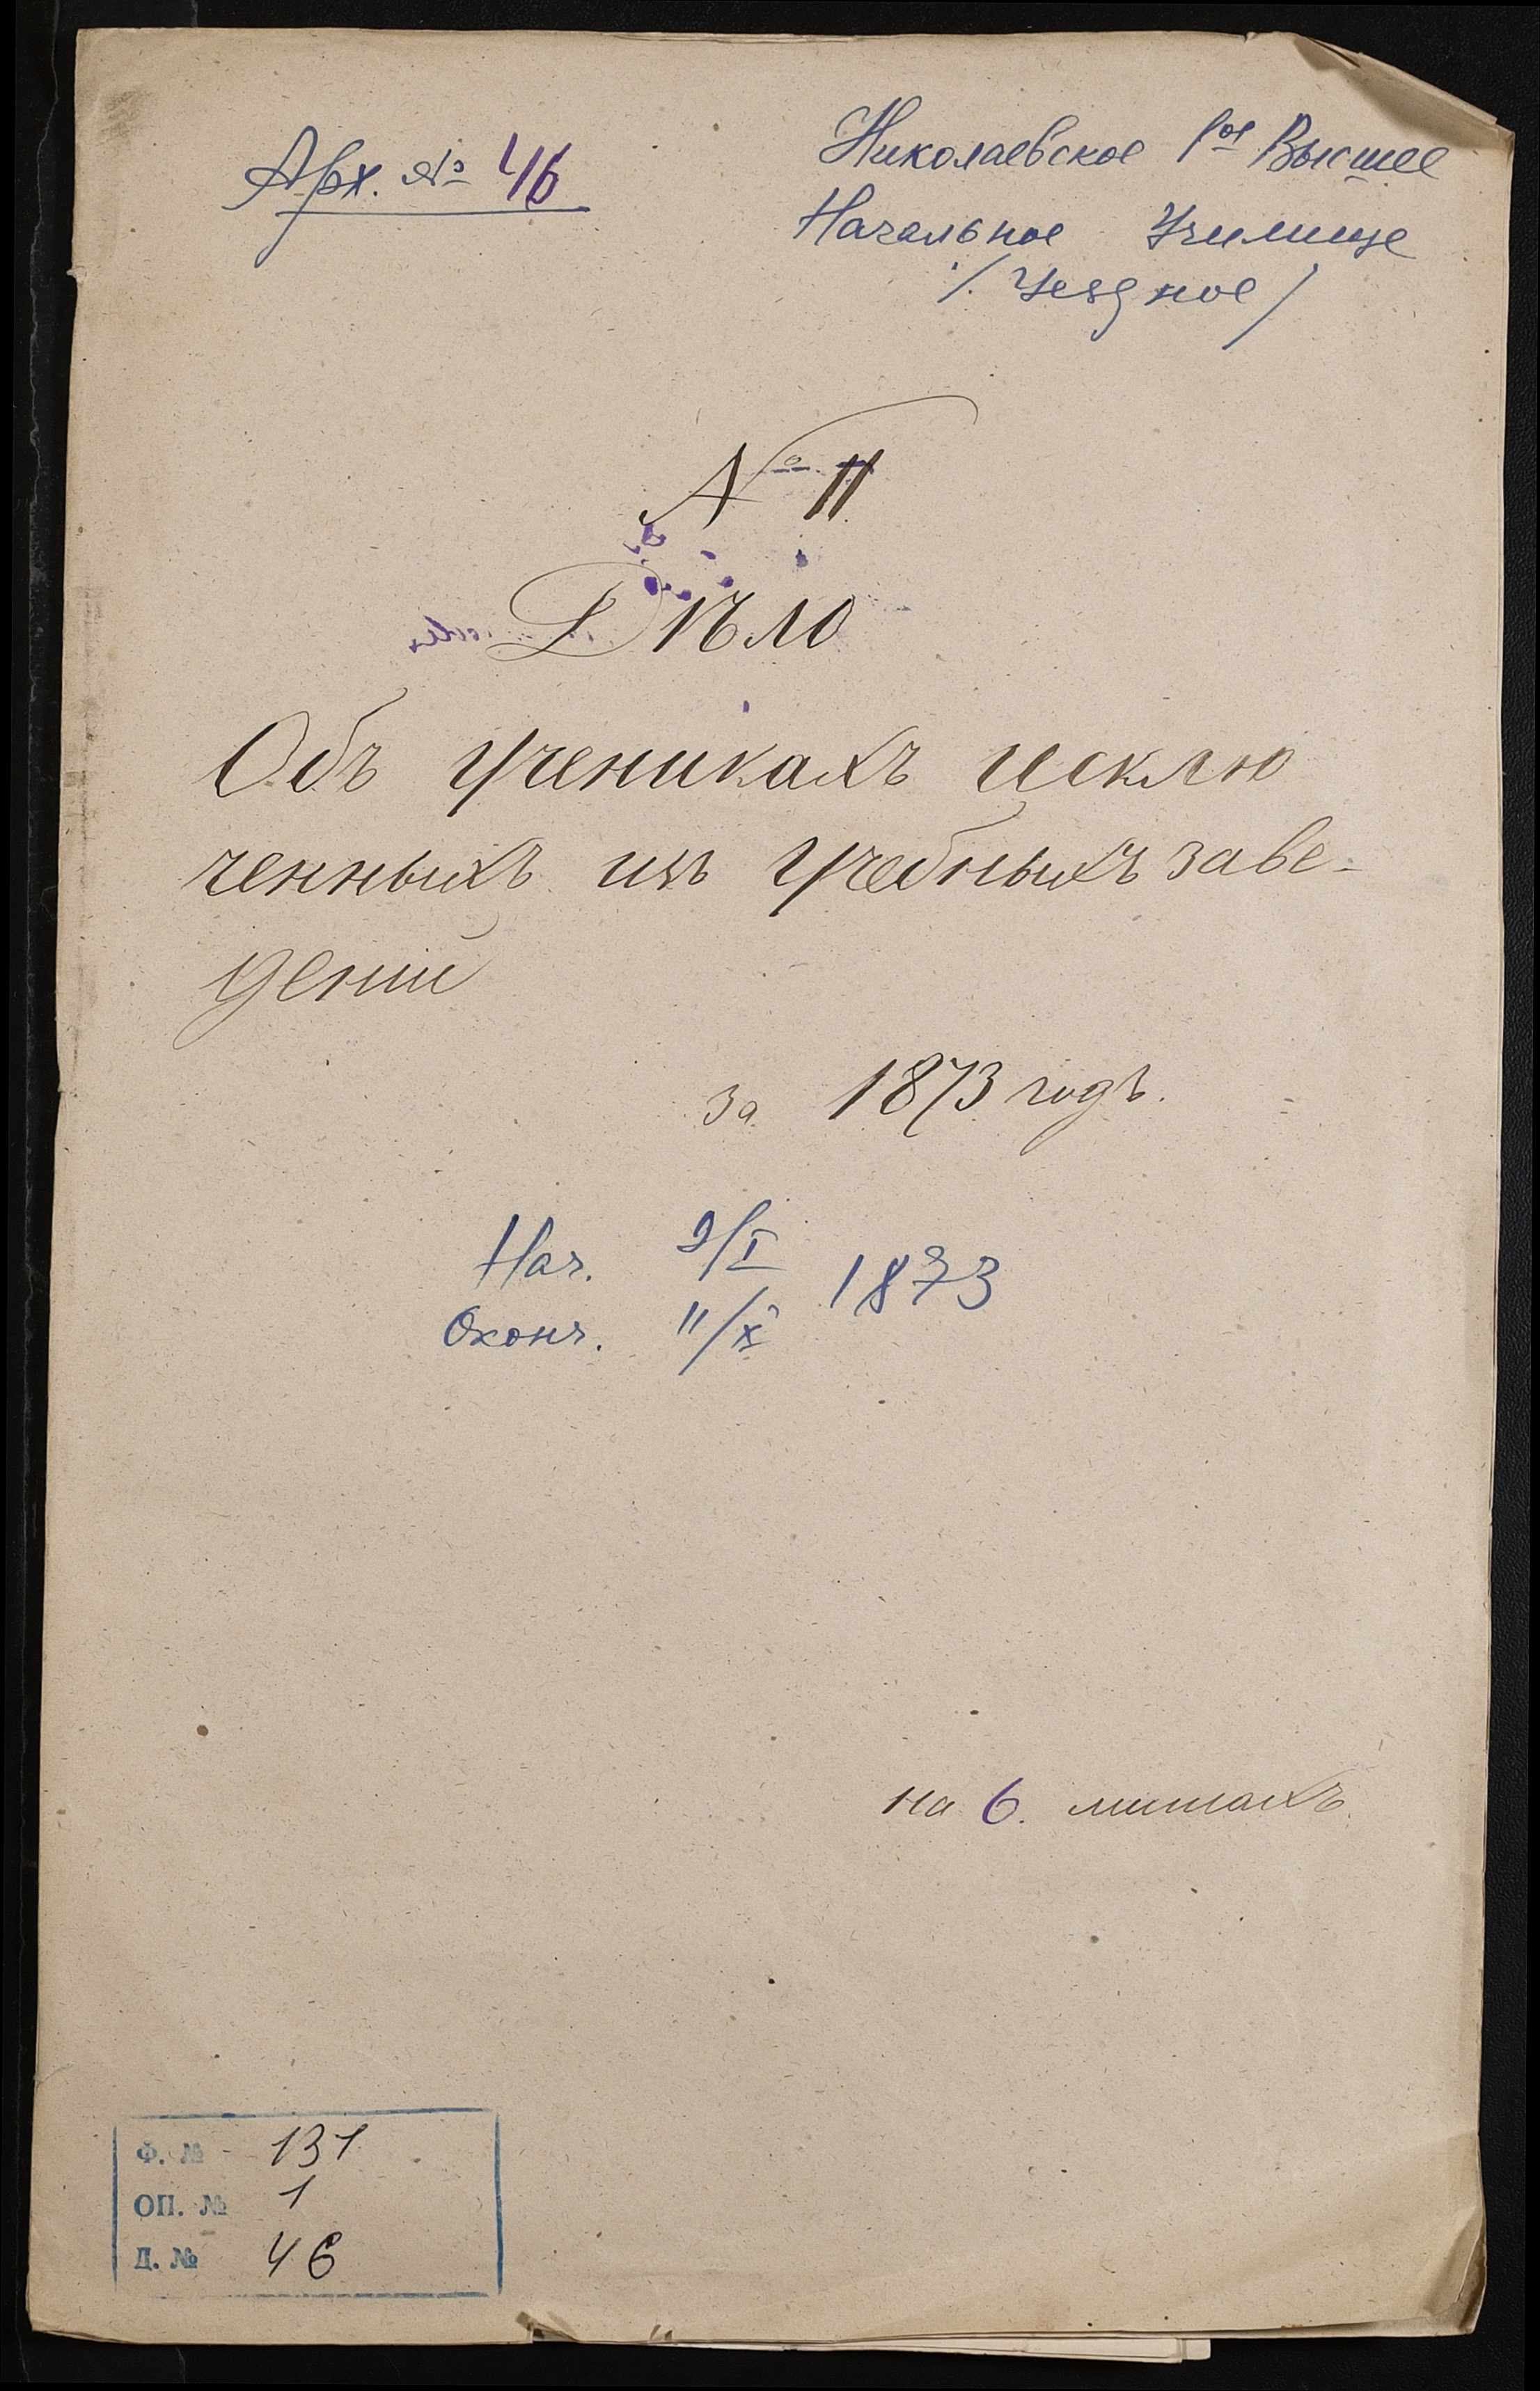 Арх. № 46
Николаевское 1ое Высшее
Начальное Училище
/. Уездное /
№ 11
Дѣло
Объ ученикахъ исклю
ченныхъ изъ учебныхъ заве-
деній
за 1873 годъ.
Нач. 9/I
1873
Оконч. 11/X
на 6. листахъ
Ф. № 131
ОП. № 1
Д. № 46